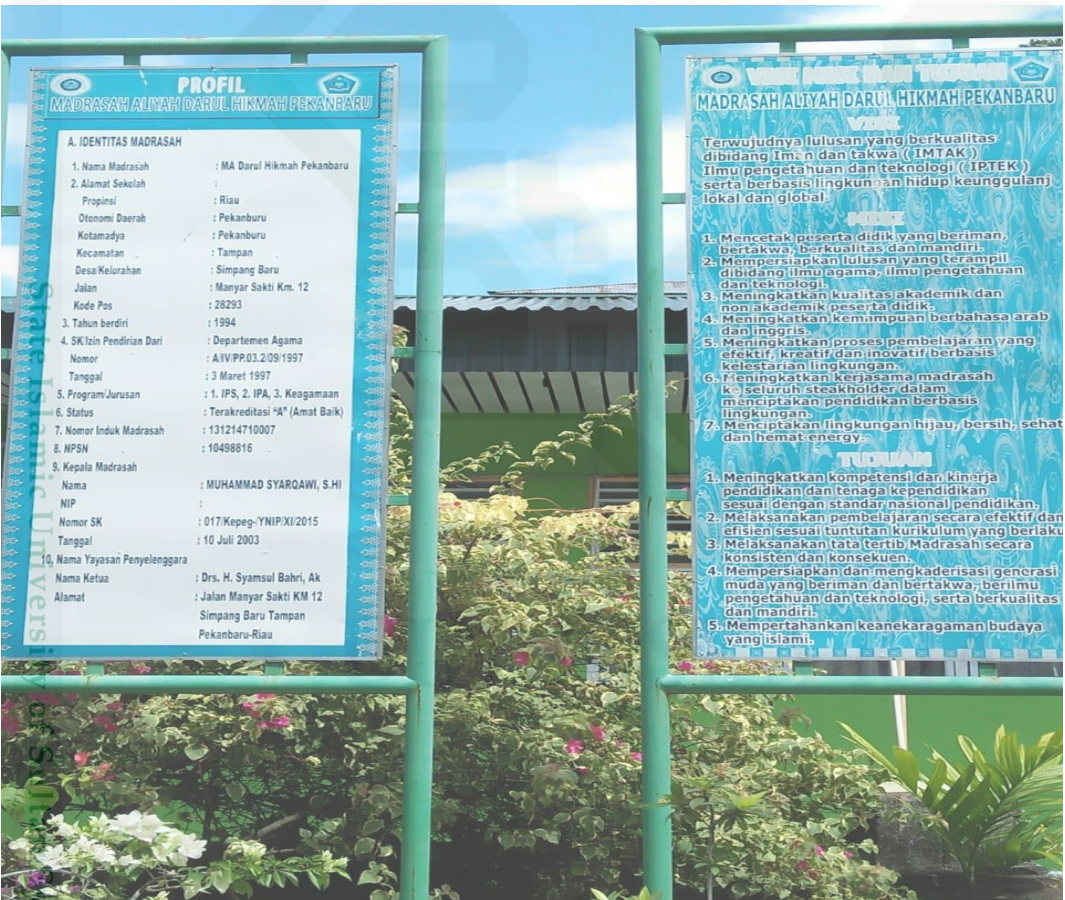 PROFIL
MADRASAH ALIYAH DARUL HIKMAH PEKANBARU
A. IDENTITAS MADRASAH
1. Nama Madrasah : MA Darul Hikmah Pekanbaru
2. Alamat Sekolah :
Propinsi : Riau
Otonomi Daerah : Pekanburu
Kotamadya : Pekanburu
Kecamatan : Tampan
Desa/Kelurahan : Simpang Baru
Jalan : Manyar Sakti Km. 12
Kode Pos : 28293
3. Tahun berdiri : 1994
4. SK/Izin Pendirian Dari : Departemen Agama
Nomor : A/IV/PP.03.2/09/1997
Tanggal : 3 Maret 1997
5. Program/Jurusan : 1. IPS, 2. IPA, 3. Keagamaan
6. Status : Terakreditasi "A" (Amat Baik)
7. Nomor Induk Madrasah : 131214710007
8. NPSN : 10498816
9. Kepala Madrasah
Nama : MUHAMMAD SYARQAWI, S.HI
NIP :
Nomor SK : 017/Kepeg-/YNIP/XI/2015
Tanggal : 10 Juli 2003
10. Nama Yayasan Penyelenggara
Nama Ketua : Drs. H. Syamsul Bahri, Ak
Alamat : Jalan Manyar Sakti KM 12
Simpang Baru Tampan
Pekanbaru-Riau
VISI MISI DAN TUJUAN
MADRASAH ALIYAH DARUL HIKMAH PEKANBARU
VISI
Terwujudnya lulusan yang berkualitas
dibidang Iman dan takwa ( IMTAK )
Ilmu pengetahuan dan teknologi ( IPTEK )
serta berbasis lingkungan hidup keunggulanj
lokal dan global.
MISI
1. Mencetak peserta didik yang beriman,
bertakwa, berkualitas dan mandiri.
2. Mempersiapkan lulusan yang terampil
dibidang ilmu agama, ilmu pengetahuan
dan teknologi.
3. Meningkatkan kualitas akademik dan
non akademik peserta didik.
4. Meningkatkan kemampuan berbahasa arab
dan inggris.
5. Meningkatkan proses pembelajaran yang
efektif, kreatif dan inovatif berbasis
kelestarian lingkungan.
6. Meningkatkan kerjasama madrasah
ke seluruh steakholder dalam
menciptakan pendidikan berbasis
lingkungan.
7. Menciptakan lingkungan hijau, bersih, sehat
dan hemat energy.
TUJUAN
1. Meningkatkan kompetensi dan kinerja
pendidikan dan tenaga kependidikan
sesuai dengan standar nasional pendidikan.
2. Melaksanakan pembelajaran secara efektif dan
efisien sesuai tuntutan kurikulum yang berlaku
3. Melaksanakan tata tertib Madrasah secara
konsisten dan konsekuen.
4. Mempersiapkan dan mengkaderisasi generasi
muda yang beriman dan bertakwa, berilmu
pengetahuan dan teknologi, serta berkualitas
dan mandiri.
5. Mempertahankan keanekaragaman budaya
yang islami.
State Islamic University of Sultan